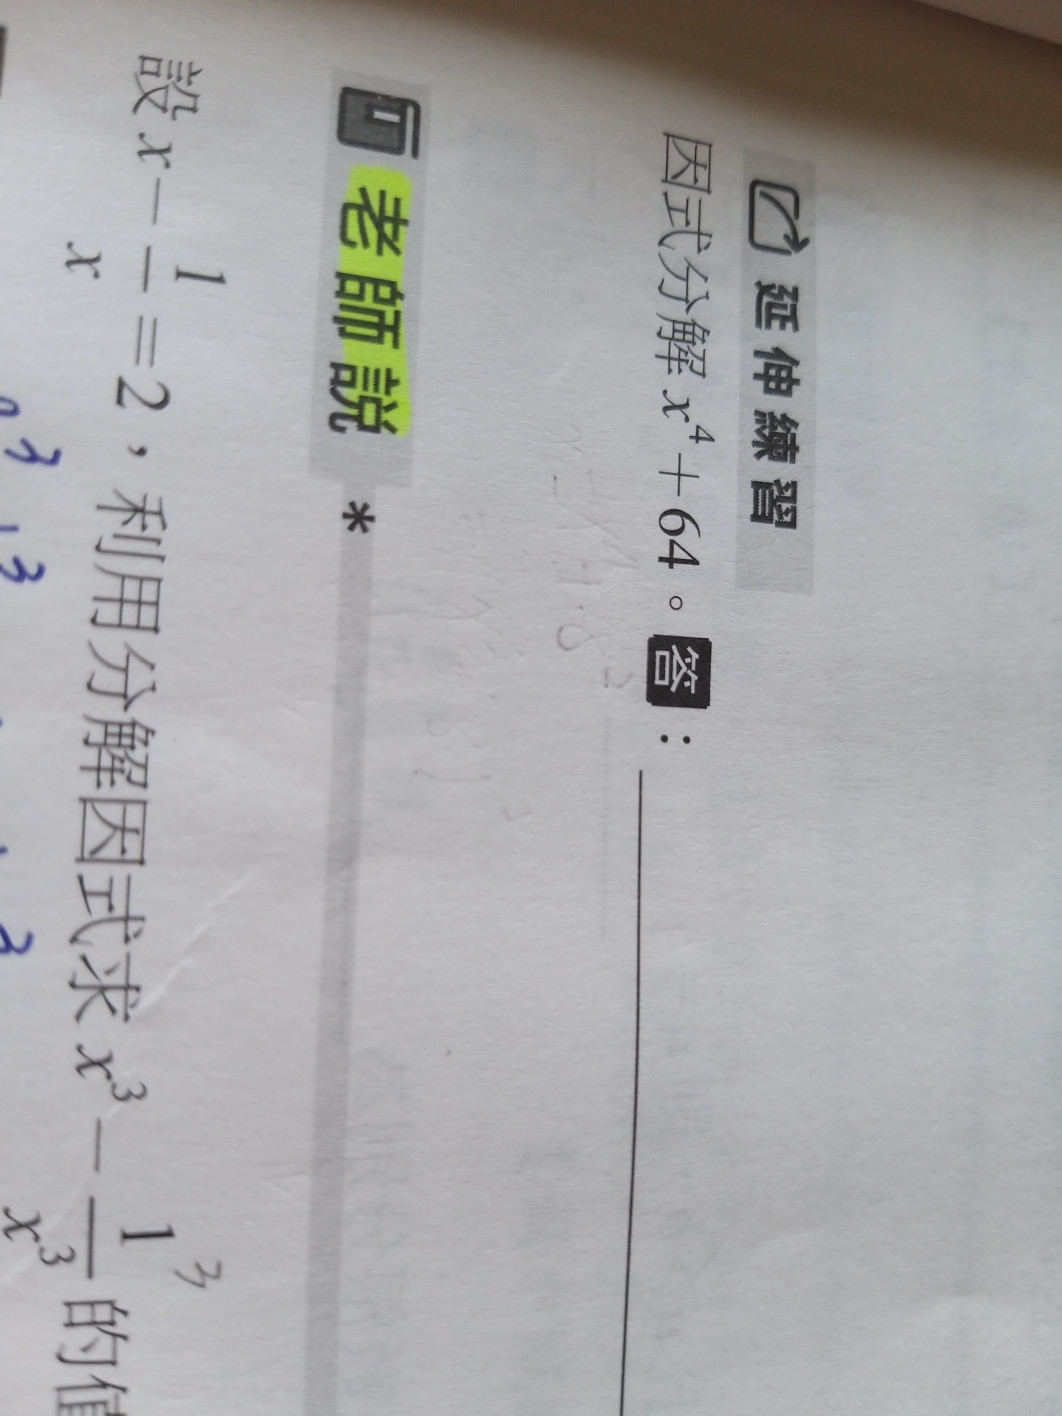 延伸練習
因式分解 x⁴＋64。答：
老師說 *
設 x－1/x＝2，利用分解因式求 x³－1/x³ 的值
3